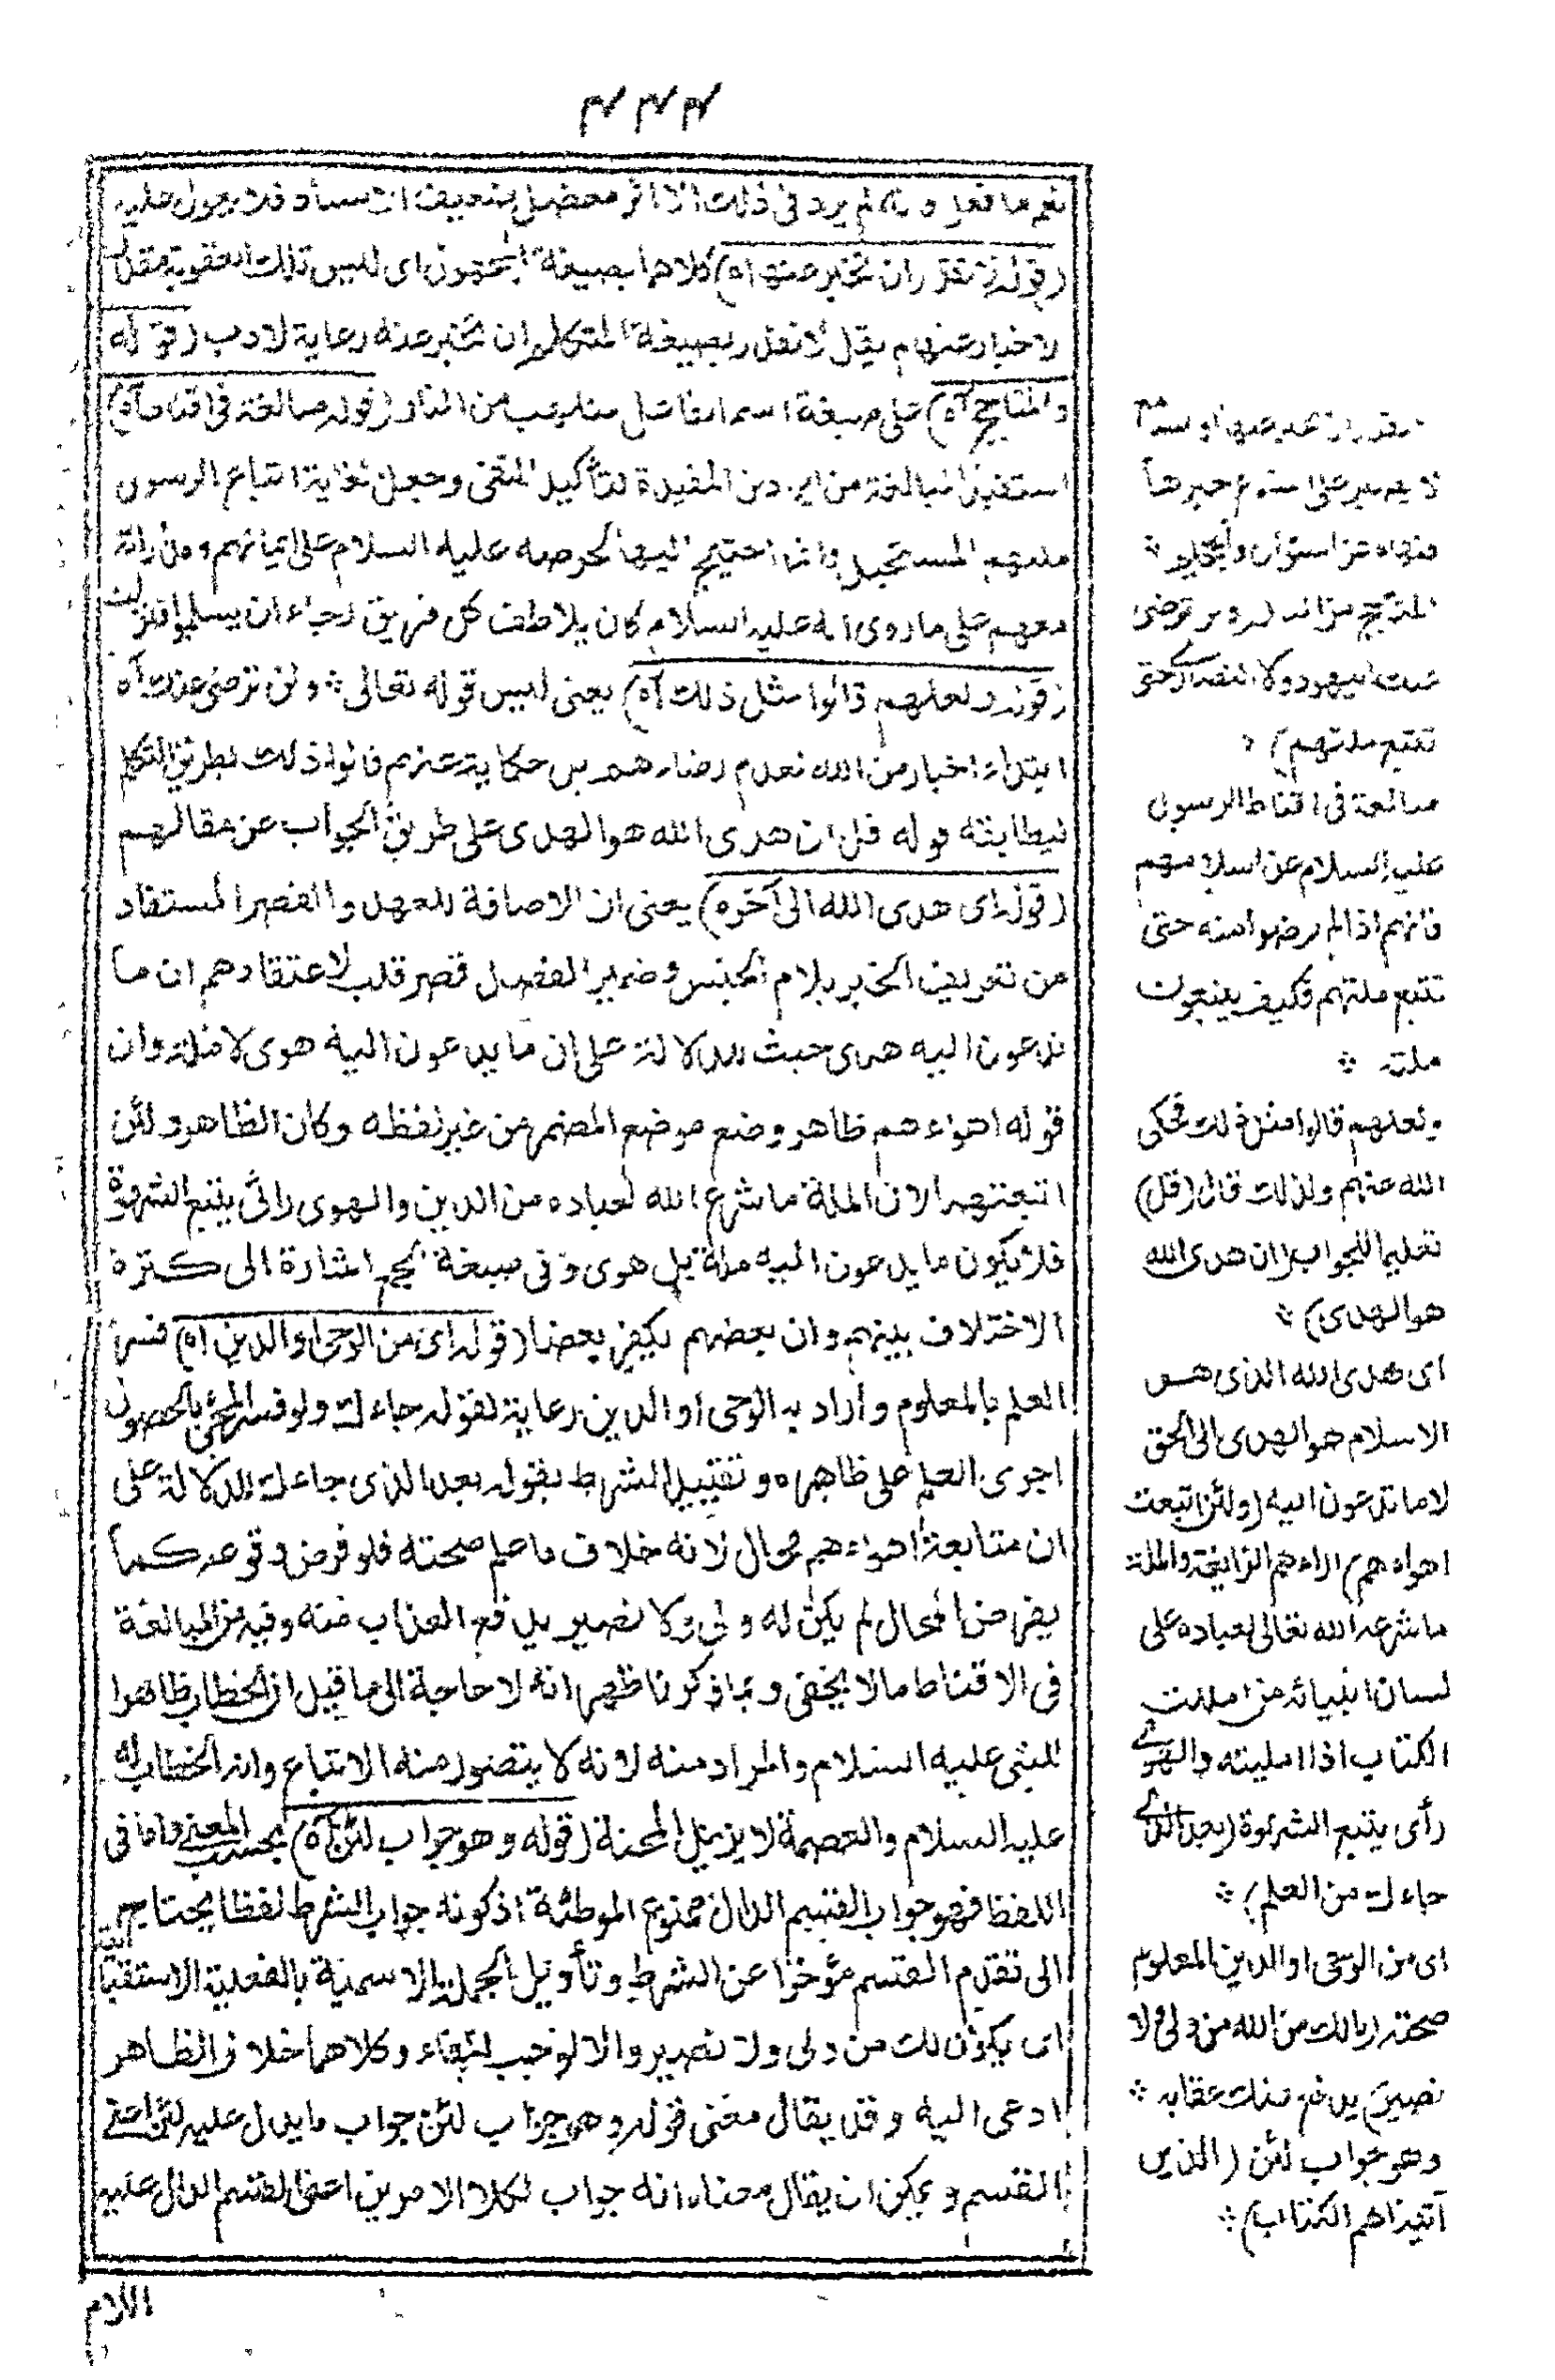 ٤٤٤
نعم ما فعل و لم يرد فى ذلك الا اثر معضل ضعيف الاسناد فلا يعول عليه
(قوله لا تقدر ان تخبر عنها اه) كلاهما بصيغة المجهول اى ليس تلك العقوبة
لاخبار عنها لم يقل لا نقدر بصيغة المتكلم ان نخبر عنه رعاية لادب (قوله
والمتأجج آه) على صيغة اسم الفاعل ملتهب من النار (قوله مبالغة فى اقناطه آه)
استفيد المبالغة من المفيدة لتأكيد النفى وجعل غاية اتباع الرسول
ملتهم المستحيل وانما احتيج اليها لحرصه عليه السلام على ايمانهم
معهم على ما روى انه عليه السلام كان يلاطف كل فريق رجاء ان يسلموا فنزلت
(قوله ولعلهم قالوا مثل ذلك آه) يعنى ليس قوله تعالى * ولن ترضى عنك آه
ابتداء اخبار من الله بعدم رضاءهم بل حكاية عنهم قالوا ذلك بطريق التكلم
ليطابقه قوله قل ان هدى الله هو الهدى على طريق الجواب عن مقالهم
(قوله اى هدى الله الى آخره) يعنى ان الاضافة للعهد والقصر المستفاد
من تعريف الخبر بلام الجنس وضمير الفصل قصر قلب لاعتقادهم ان ما
تدعون اليه هدى حيث للدلالة على ان ما يدعون اليه هوى لا ملة وان
قوله اهواءهم ظاهر وضع موضع المضمر من غير لفظه وكان الظاهر ولئن
اتبعتهم الان الملة ما شرع الله لعباده من الدين والهوى رائ يتبع الشهوة
فلا يكون ما يدعون اليه ملة بل هوى وفى صيغة الجمع اشارة الى كثرة
الاختلاف بينهم وان بعضهم يكفر بعضا (قوله اى من الوحى او الدين اه) فسر
العلم بالمعلوم واراد به الوحى او الدين رعاية لقوله جاءك ولو فسر المجئ بالحصول
اجرى العلم على ظاهره وتقييد الشرط بقوله بعد الذى جاءك للدلالة على
ان متابعة اهواءهم محال لانه خلاف ما علم صحته فلو فرض وقوعه كما
يفرض المحال لم يكن له ولى ولا نصير يدفع العذاب عنه وفيه من المبالغة
فى الاقناط ما لا يخفى وبما ذكرنا ظهر انه لا حاجة الى ما قيل ان الخطاب ظاهرا
للنبى عليه السلام والمراد منه لانه لا يتصور منه الاتباع وان الخطاب له
عليه السلام والعصمة لا يزيل المحنة (قوله وهو جواب لئن آه) بحسب المعنى واما فى
اللفظ فهو جواب القسم الدال الموطئة اذ كونه جواب الشرط لفظا يحتاج
الى تقدم القسم مؤخرا عن الشرط وتأويل الجملة الاسمية بالفعلية الاستقبالية
اى يكون لك من ولى ولا نصير والا لوجب الفاء وكلاهما خلاف الظاهر
ادعى اليه وقد يقال معنى قوله وهو جواب لئن جواب ما يدل عليه لئن اعنى
القسم ويمكن ان يقال معناه انه جواب لكلا الامرين اعنى القسم الدال عليه
اللام
لا يصبر على استماع خبرها
فنهاه عن السؤال والجحيم *
المتأجج من النار (ولن ترضى
عنك اليهود ولا النصارى حتى
تتبع ملتهم) *
مبالغة فى اقناط الرسول
عليه السلام عن اسلامهم
فانهم اذا لم يرضوا منه حتى
تتبع ملتهم فكيف يتبعون
ملته *
ولعلهم قالوا مثل ذلك فحكى
الله عنهم ولذلك قال (قل)
تعليما للجواب (ان هدى الله
هو الهدى) *
اى هدى الله الذى هو
الاسلام هو الهدى الى الحق
لا ما تدعون اليه (ولئن اتبعت
اهواءهم) اراءهم الزايغة والملة
ما شرعه الله تعالى لعباده على
لسان انبيائه من امللت
الكتاب اذا امليته والهوى
رأى يتبع الشهوة (بعد الذى
جاءك من العلم) *
اى من الوحى او الدين المعلوم
صحته (مالك من الله من ولى ولا
نصير) يدفع عنك عقابه *
وهو جواب لئن (الذين
آتيناهم الكتاب) *